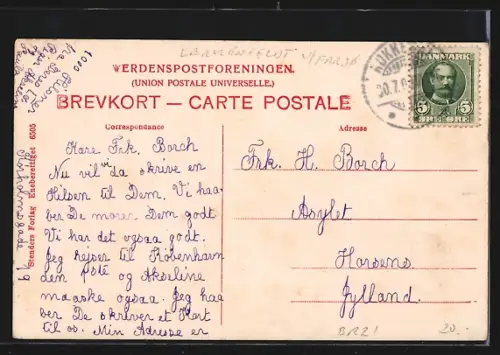 VERDENSPOSTFORENINGEN.
(UNION POSTALE UNIVERSELLE.)
BREVKORT — CARTE POSTALE
Correspondance
Adresse
Kære Frk. Borch
Nu vil vi da skrive en
Hilsen til Dem. Vi haa
ber De morer Dem godt
Vi har det ogsaa godt.
Jeg rejser til Kobenhavn
den og
maaske ogsaa. Jeg haa
ber De skriver et Kort
til os. Min Adresse er
Frk. H. Borch
Asylet
Horsens
Jylland.
DANMARK
5 5
ØRE ØRE
Stenders Forlag Eneberettiget 6505
BR21
20.-